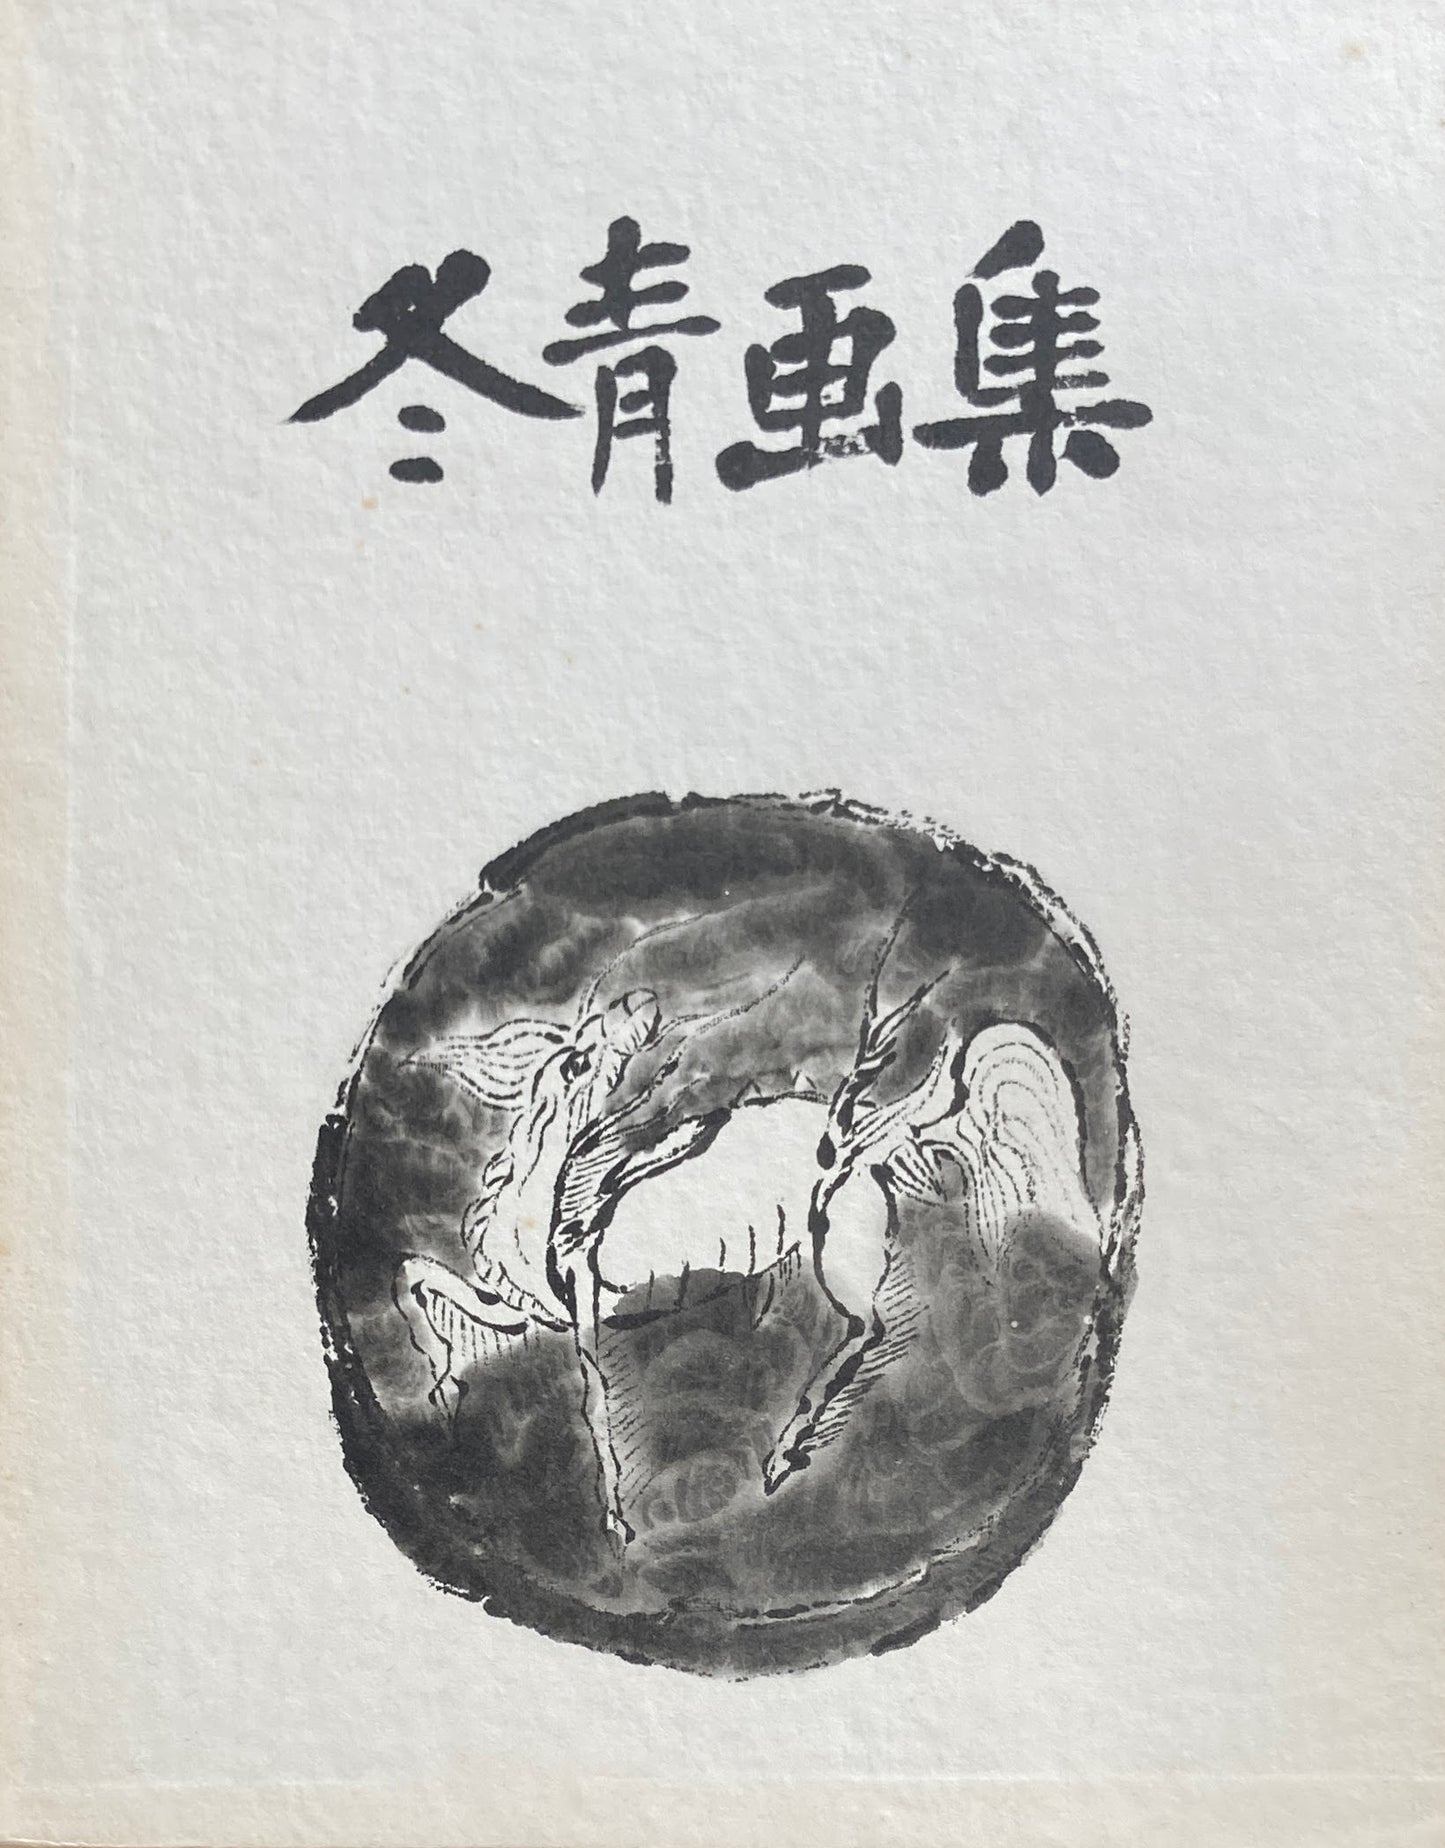 冬青画集